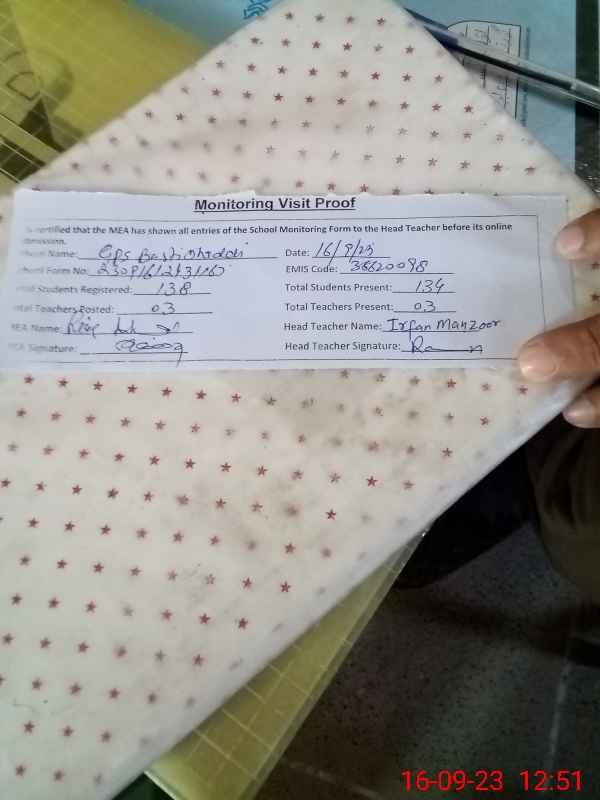 Monitoring Visit Proof
is certified that the MEA has shown all entries of the School Monitoring Form to the Head Teacher before its online
Name: GPS Date: 16/9/23
Form No: EMIS Code: 36620098
Students Registered: 138 Total Students Present: 134
Teachers Posted: 03 Total Teachers Present: 03
MEA Name: Head Teacher Name: Irfan Manzoor
Signature: Head Teacher Signature:
16-09-23 12:51